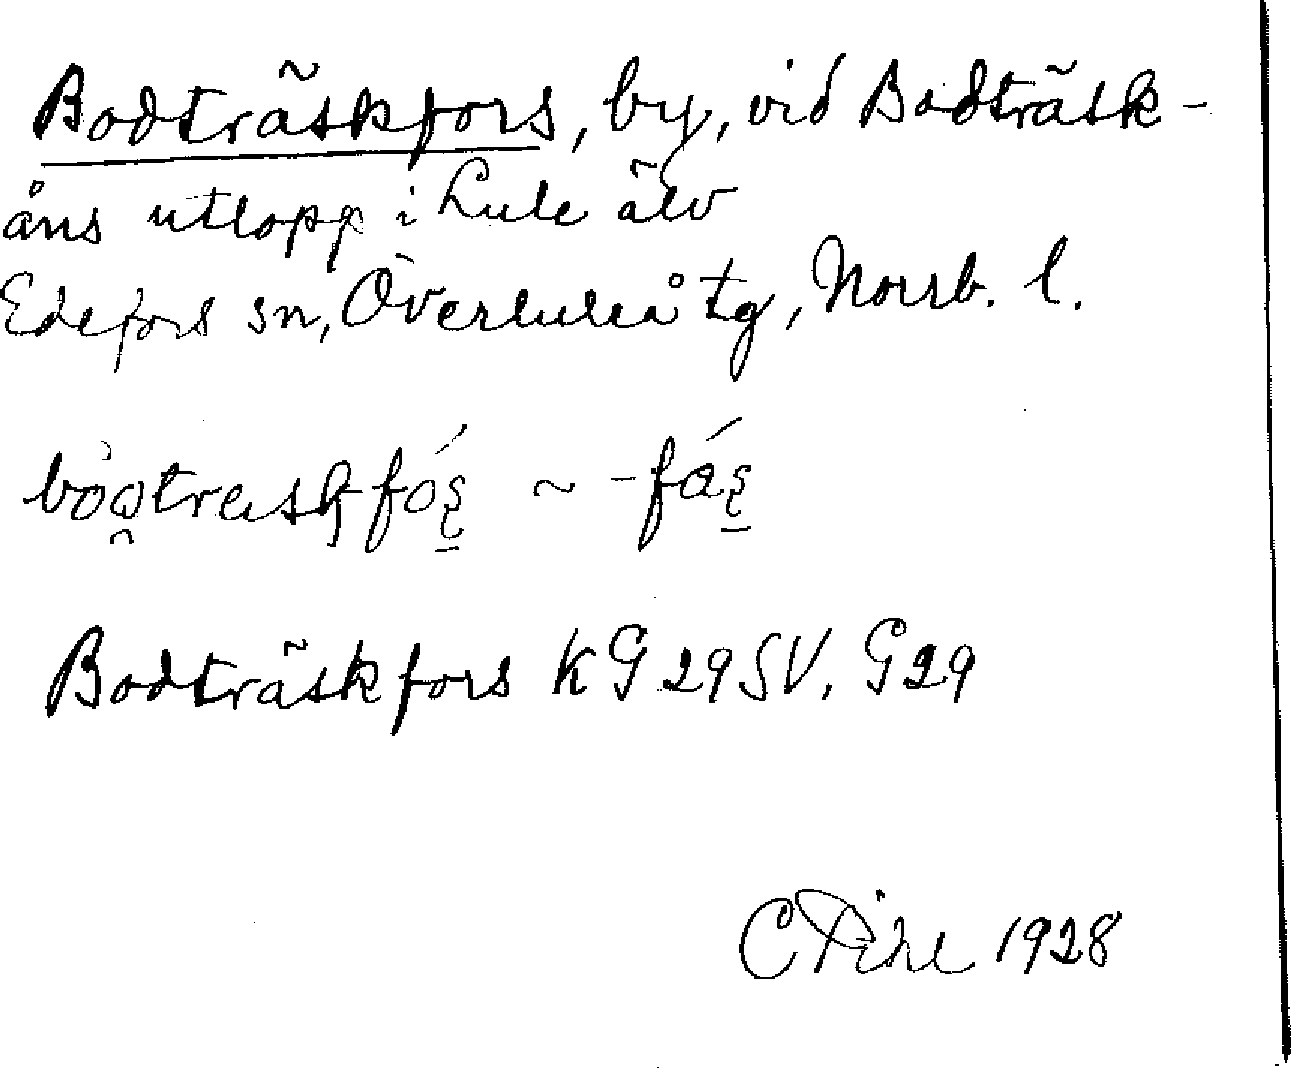 Bodträskfors, by, vid Bodträsk-
åns utlopp i Lule älv
Edefors sn, Överluleå tg, Norrb. l.
~
Bodträskfors KG 29 SV. G29
C Pihl 1928